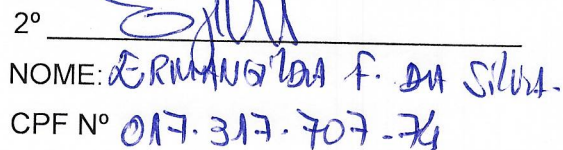 2º
NOME: ERMANGILDA F. DA SILVA.
CPF Nº 017.317.707-74